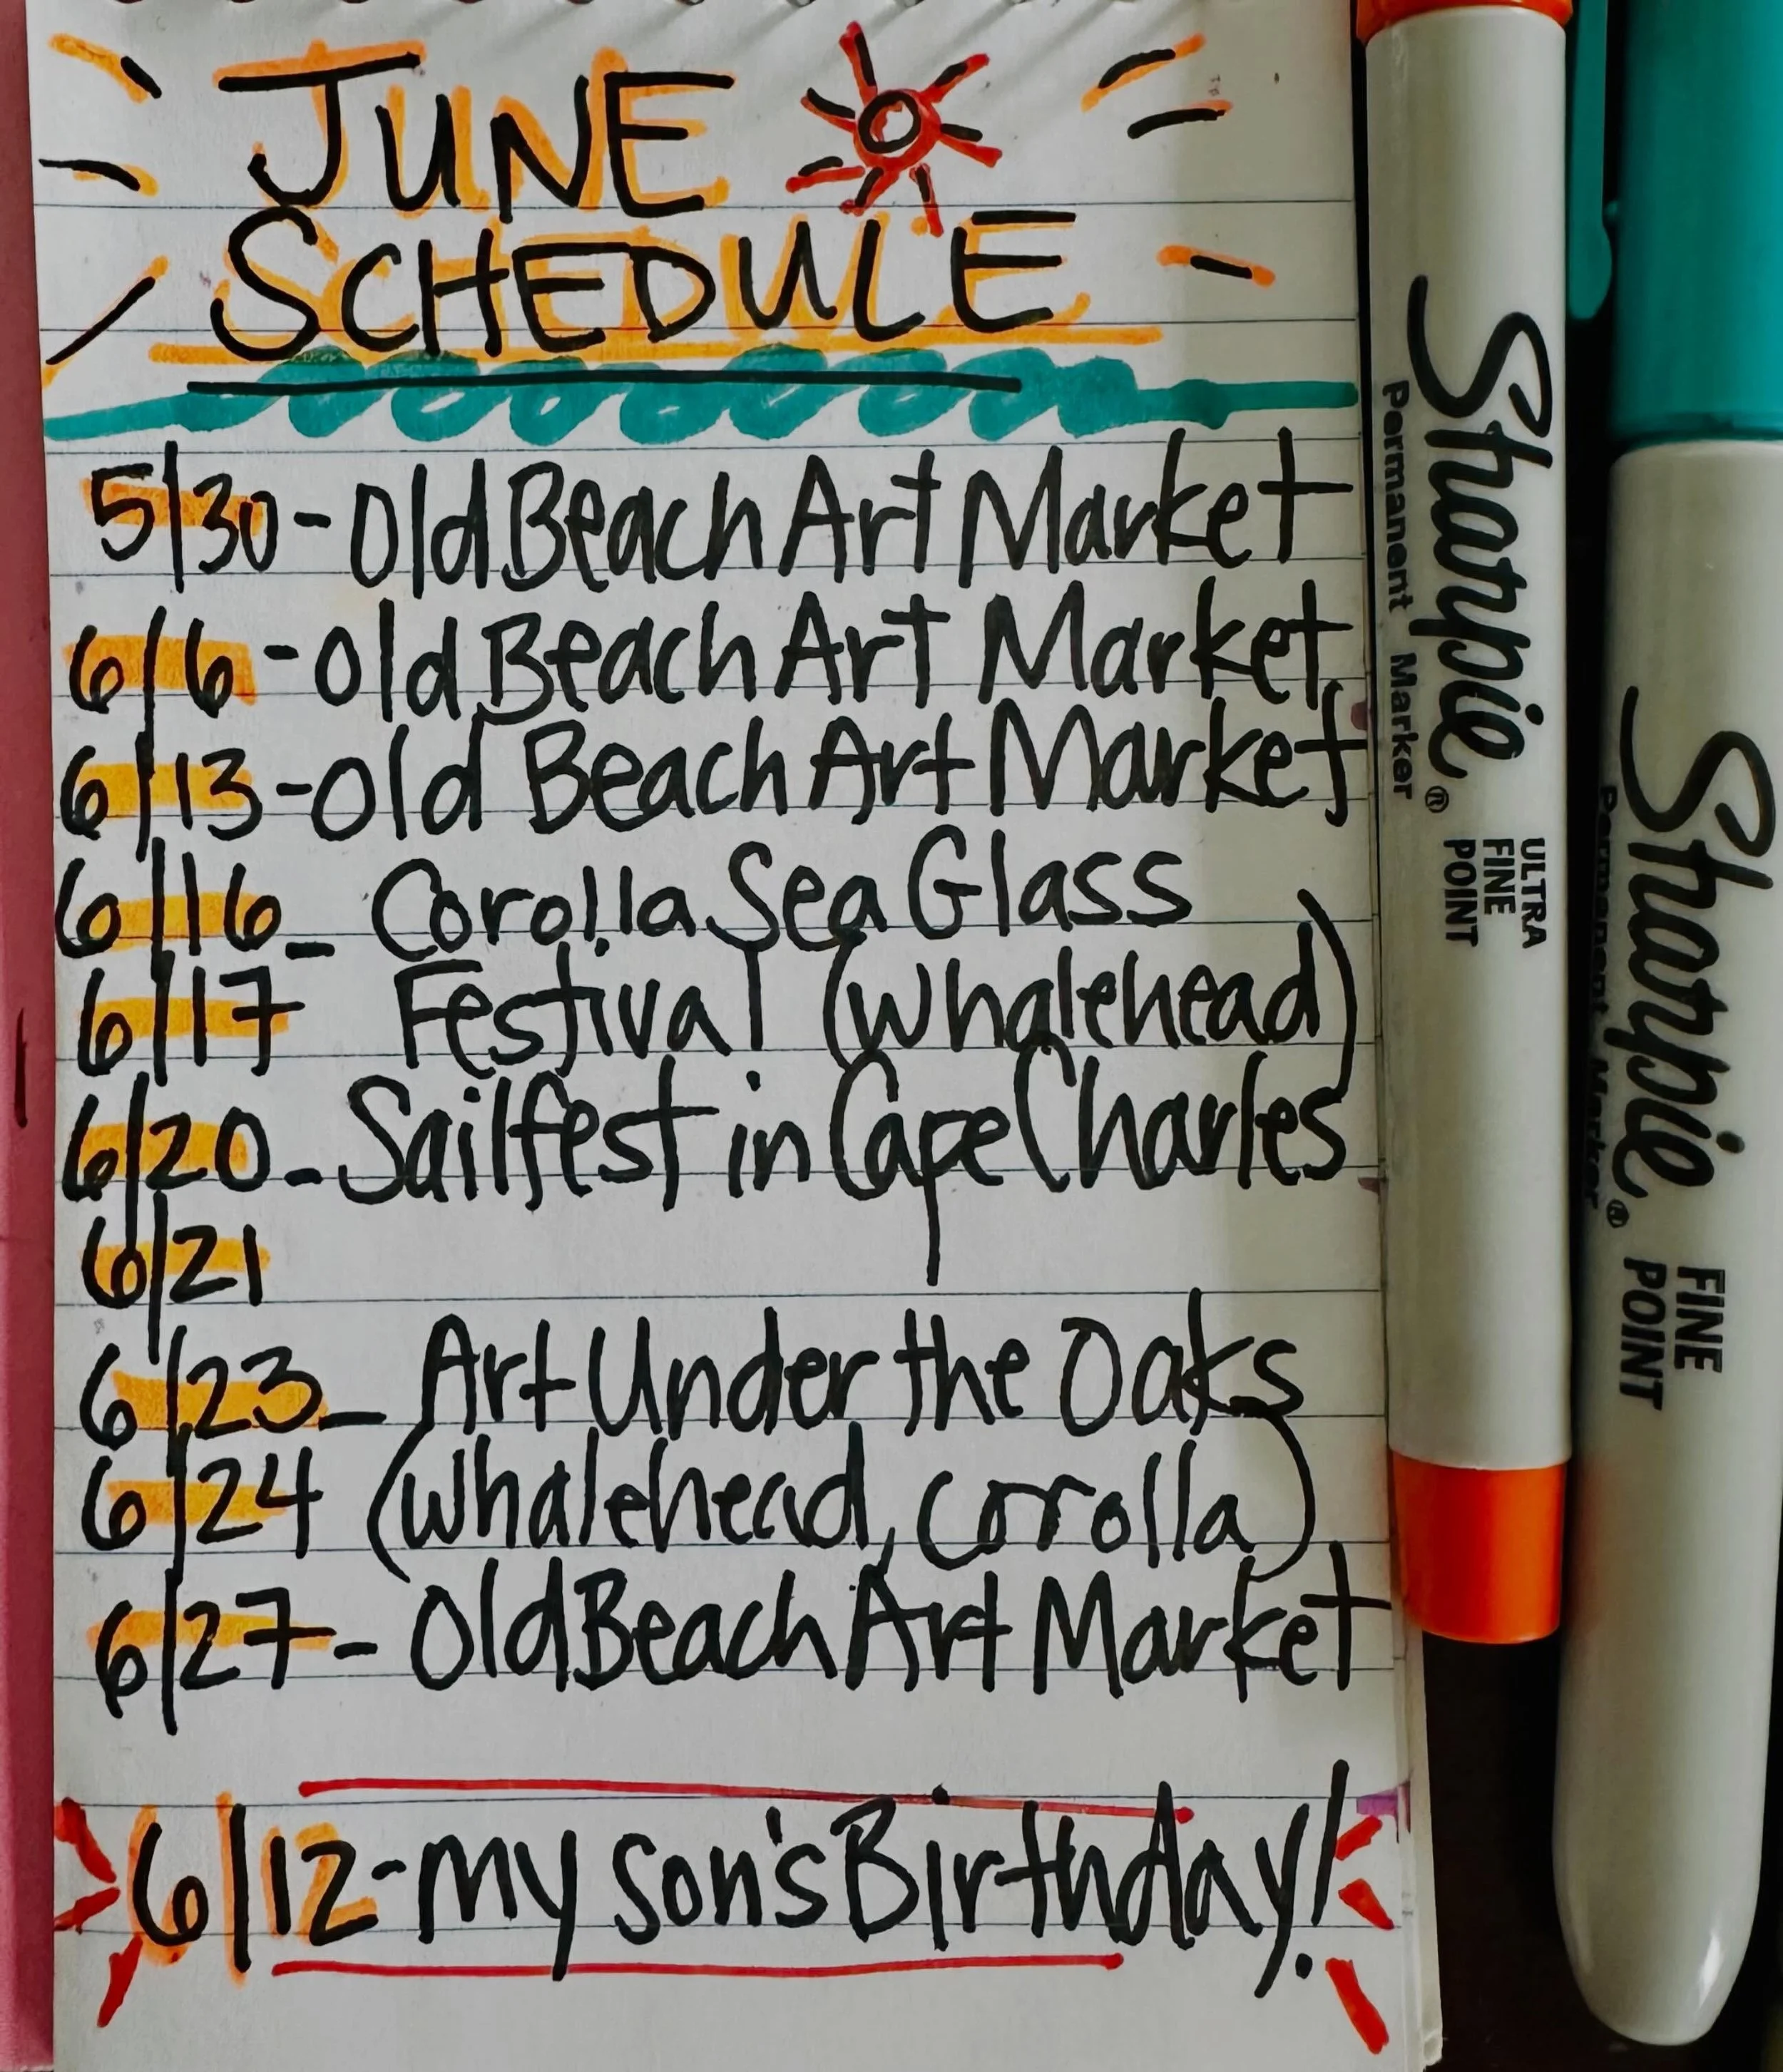 JUNE
SCHEDULE
5/30 - Old Beach Art Market
6/6 - Old Beach Art Market
6/13 - Old Beach Art Market
6/16 - Corolla Sea Glass
6/17 Festival (Whalehead)
6/20 - Sailfest in Cape Charles
6/21
6/23 - Art Under the Oaks
6/24 (Whalehead, Corolla)
6/27 - Old Beach Art Market
6/12 - my son's Birthday!
Sharpie®
Permanent Marker
ULTRA
FINE
POINT
Sharpie®
Permanent Marker
FINE
POINT